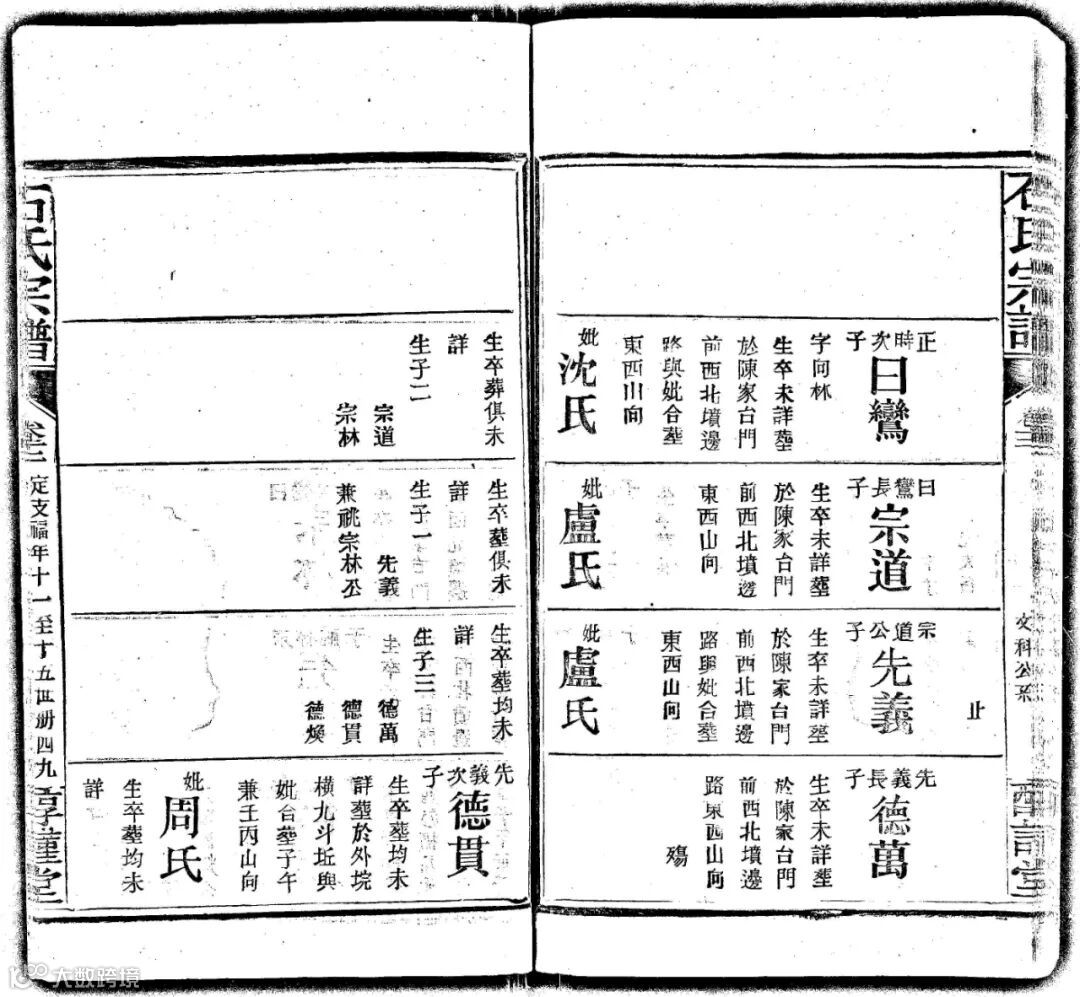 石氏宗譜
文科公系
止
正時次子
曰鸞
字向林
生卒未詳塟
於陳家台門
前西北墳邊
路與妣合塟
東西山向
妣
沈氏
曰鸞長子
宗道
生卒未詳塟
於陳家台門
前西北墳邊
東西山向
妣
盧氏
宗道公子
先義
生卒未詳塟
於陳家台門
前西北墳邊
路與妣合塟
東西山向
妣
盧氏
先義長子
德萬
生卒未詳塟
於陳家台門
前西北墳邊
路東西山向
殤
生卒葬俱未
詳
生子二
宗道
宗林
生卒塟俱未
詳
生子一
先義
兼祧宗林公
生卒塟均未
詳
生子三
德萬
德貫
德煥
先義次子
德貫
生卒塟均未
詳塟於外垸
横九斗坵與
妣合塟子午
兼壬丙山向
妣
周氏
生卒塟均未
詳
石氏宗譜
卷二
定支福年十一至十五世册四九
大数跨境